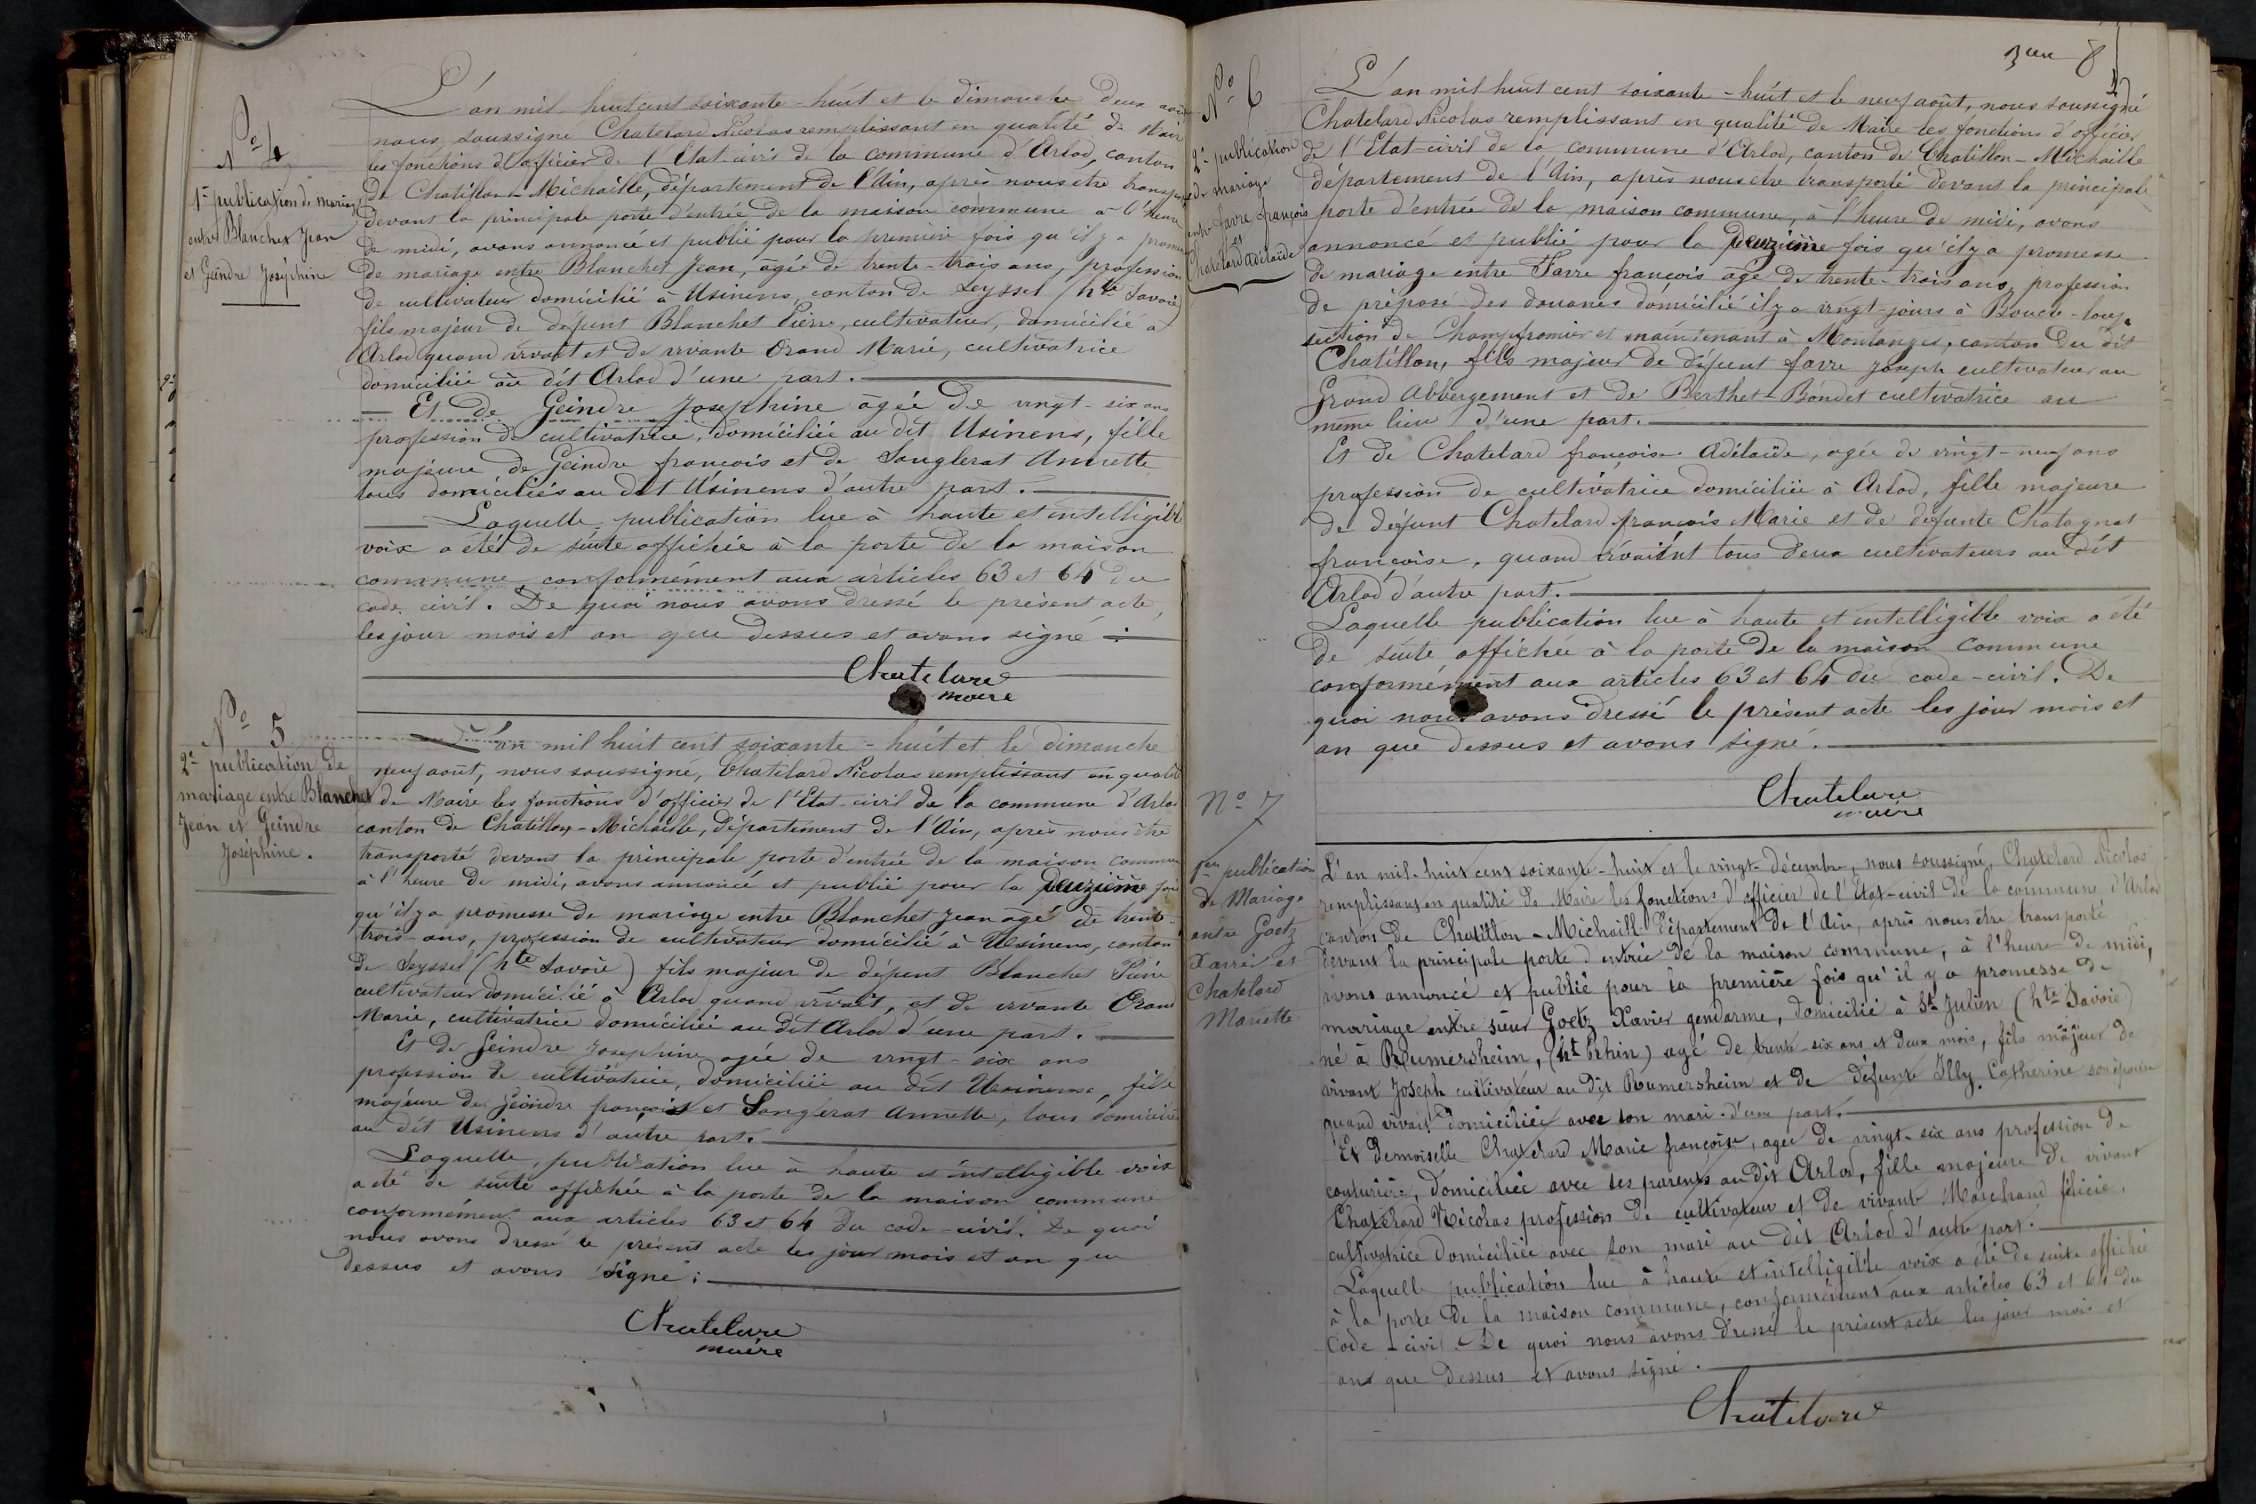 N° 4
1re publication de mariage
entre Blanchet Jean
et Geindre Joséphine
L'an mil huit cent soixante-huit et le dimanche deux août
nous soussigné Chatelard Nicolas remplissant en qualité de Maire
les fonctions d'officier de l'Etat-civil de la commune d'Arlod, canton
de Chatillon-Michaille, département de l'Ain, après nous être transporté
devant la principale porte d'entrée de la maison commune à l'heure
de midi, avons annoncé et publié pour la première fois qu'il y a promesse
de mariage entre Blanchet Jean, âgée de trente-trois ans, profession
de cultivateur domicilié à Usinens, canton de Seyssel (hte Savoie)
fils majeur de défunt Blanchet Pierre, cultivateur, domicilié à
Arlod quand vivait et de vivante Orand Marie, cultivatrice
domiciliée au dit Arlod d'une part.
Et de Geindre Josephine âgée de vingt-six ans
profession de cultivatrice, domiciliée au dit Usinens, fille
majeure de Geindre françois et de Sanglerat Annette
tous domiciliés au dit Usinens d'autre part.
Laquelle publication lue à haute et intelligible
voix a été de suite affichée à la porte de la maison
commune, conformément aux articles 63 et 64 du
code civil. De quoi nous avons dressé le présent acte,
les jour mois et an que dessus et avons signé
Chatelard
maire
N° 5
2e publication de
mariage entre Blanchet
Jean et Geindre
Joséphine.
L'an mil huit cent soixante-huit et le dimanche
neuf août, nous soussigné, Chatelard Nicolas remplissant en qualité
de Maire les fonctions d'officier de l'Etat-civil de la commune d'Arlod
canton de Chatillon-Michaille, département de l'Ain, après nous être
transporté devant la principale porte d'entrée de la maison commune
à l'heure de midi, avons annoncé et publié pour la deuzième fois
qu'il y a promesse de mariage entre Blanchet Jean âgé de trente-
trois ans, profession de cultivateur domicilié à Usinens, canton
de Seyssel (hte Savoie) fils majeur de défunt Blanchet Pierre
cultivateur domicilié à Arlod quand vivait, et de vivante Orand
Marie, cultivatrice domiciliée au dit Arlod d'une part.
Et de Geindre Josephine agée de vingt-six ans
profession de cultivatrice, domiciliée au dit Usinens, fille
majeure de Geindre françois et Sanglerat Annette, tous domiciliés
au dit Usinens d'autre part.
Laquelle, publication lue à haute et intelligible voix
a été de suite affichée à la porte de la maison commune
conformément aux articles 63 et 64 du code-civil. De quoi
nous avons dressé le présent acte les jour mois et an que
dessus et avons signé.
Chatelard
maire
8
N° 6
2e publication
de mariage
entre Favre françois
et
Chatelard Adelaïde
L'an mil huit cent soixante-huit et le neuf août, nous soussigné
Chatelard Nicolas remplissant en qualité de Maire les fonctions d'officier
de l'Etat-civil de la commune d'Arlod, canton de Chatillon-Michaille
département de l'Ain, après nous être transporté devant la principale
porte d'entrée de la maison commune, à l'heure de midi, avons
annoncé et publié pour la deuzième fois qu'il y a promesse
de mariage entre Favre françois âgé de trente-trois ans, profession
de préposé des douanes domicilié il y a vingt-jours à Bouco-loup
section de Champfromier et maintenant à Montanges, canton du dit
Chatillon, fils majeur de défunt favre Joseph cultivateur au
Grand Abbergement et de Berthet-Bondet cultivatrice au
même lieu d'une part.
Et de Chatelard françoise Adélaïde, agée de vingt-neuf ans
profession de cultivatrice domiciliée à Arlod, fille majeure
de défunt Chatelard françois Marie et de défunte Chatagnat
françoise, quand vivaient tous deux cultivateurs au dit
Arlod d'autre part.
Laquelle publication lue à haute et intelligible voix a été
de suite affichée à la porte de la maison commune
conformément aux articles 63 et 64 du code-civil. De
quoi nous avons dressé le présent acte les jour mois et
an que dessus et avons signé.
Chatelard
maire
N° 7
1re publication
de Mariage
entre Goetz
Xavier et
Chatelard
Mariette
L'an mil-huit cent soixante-huit et le vingt-décembre, nous soussigné, Chatelard Nicolas
remplissant en qualité de Maire les fonctions d'officier de l'Etat-civil de la commune d'Arlod
canton de Chatillon-Michaille département de l'Ain, après nous être transporté
devant la principale porte d'entrée de la maison commune, à l'heure de midi,
avons annoncé et publié pour la première fois qu'il y a promesse de
mariage entre sieur Goetz Xavier gendarme, domicilié à St Julien (hte Savoie)
né à Rumersheim, (ht Rhin) agé de trente-six ans et deux mois, fils majeur de
vivant Joseph cultivateur au dit Rumersheim et de défunte Illy Catherine son épouse
quand vivait domiciliée avec son mari d'une part.
Et demoiselle Chatelard Marie françoise, agée de vingt-six ans profession de
couturière, domiciliée avec ses parents au dit Arlod, fille majeure de vivant
Chatelard Nicolas profession de cultivateur et de vivante Marchand félicie,
cultivatrice domiciliée avec son mari au dit Arlod d'autre part.
Laquelle publication lue à haute et intelligible voix a été de suite affichée
à la porte de la maison commune, conformément aux articles 63 et 64 du
Code-civil. De quoi nous avons dressé le présent acte les jour mois et
an que dessus et avons signé.
Chatelard